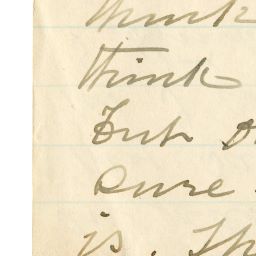 think
think
But
sure
is. Th